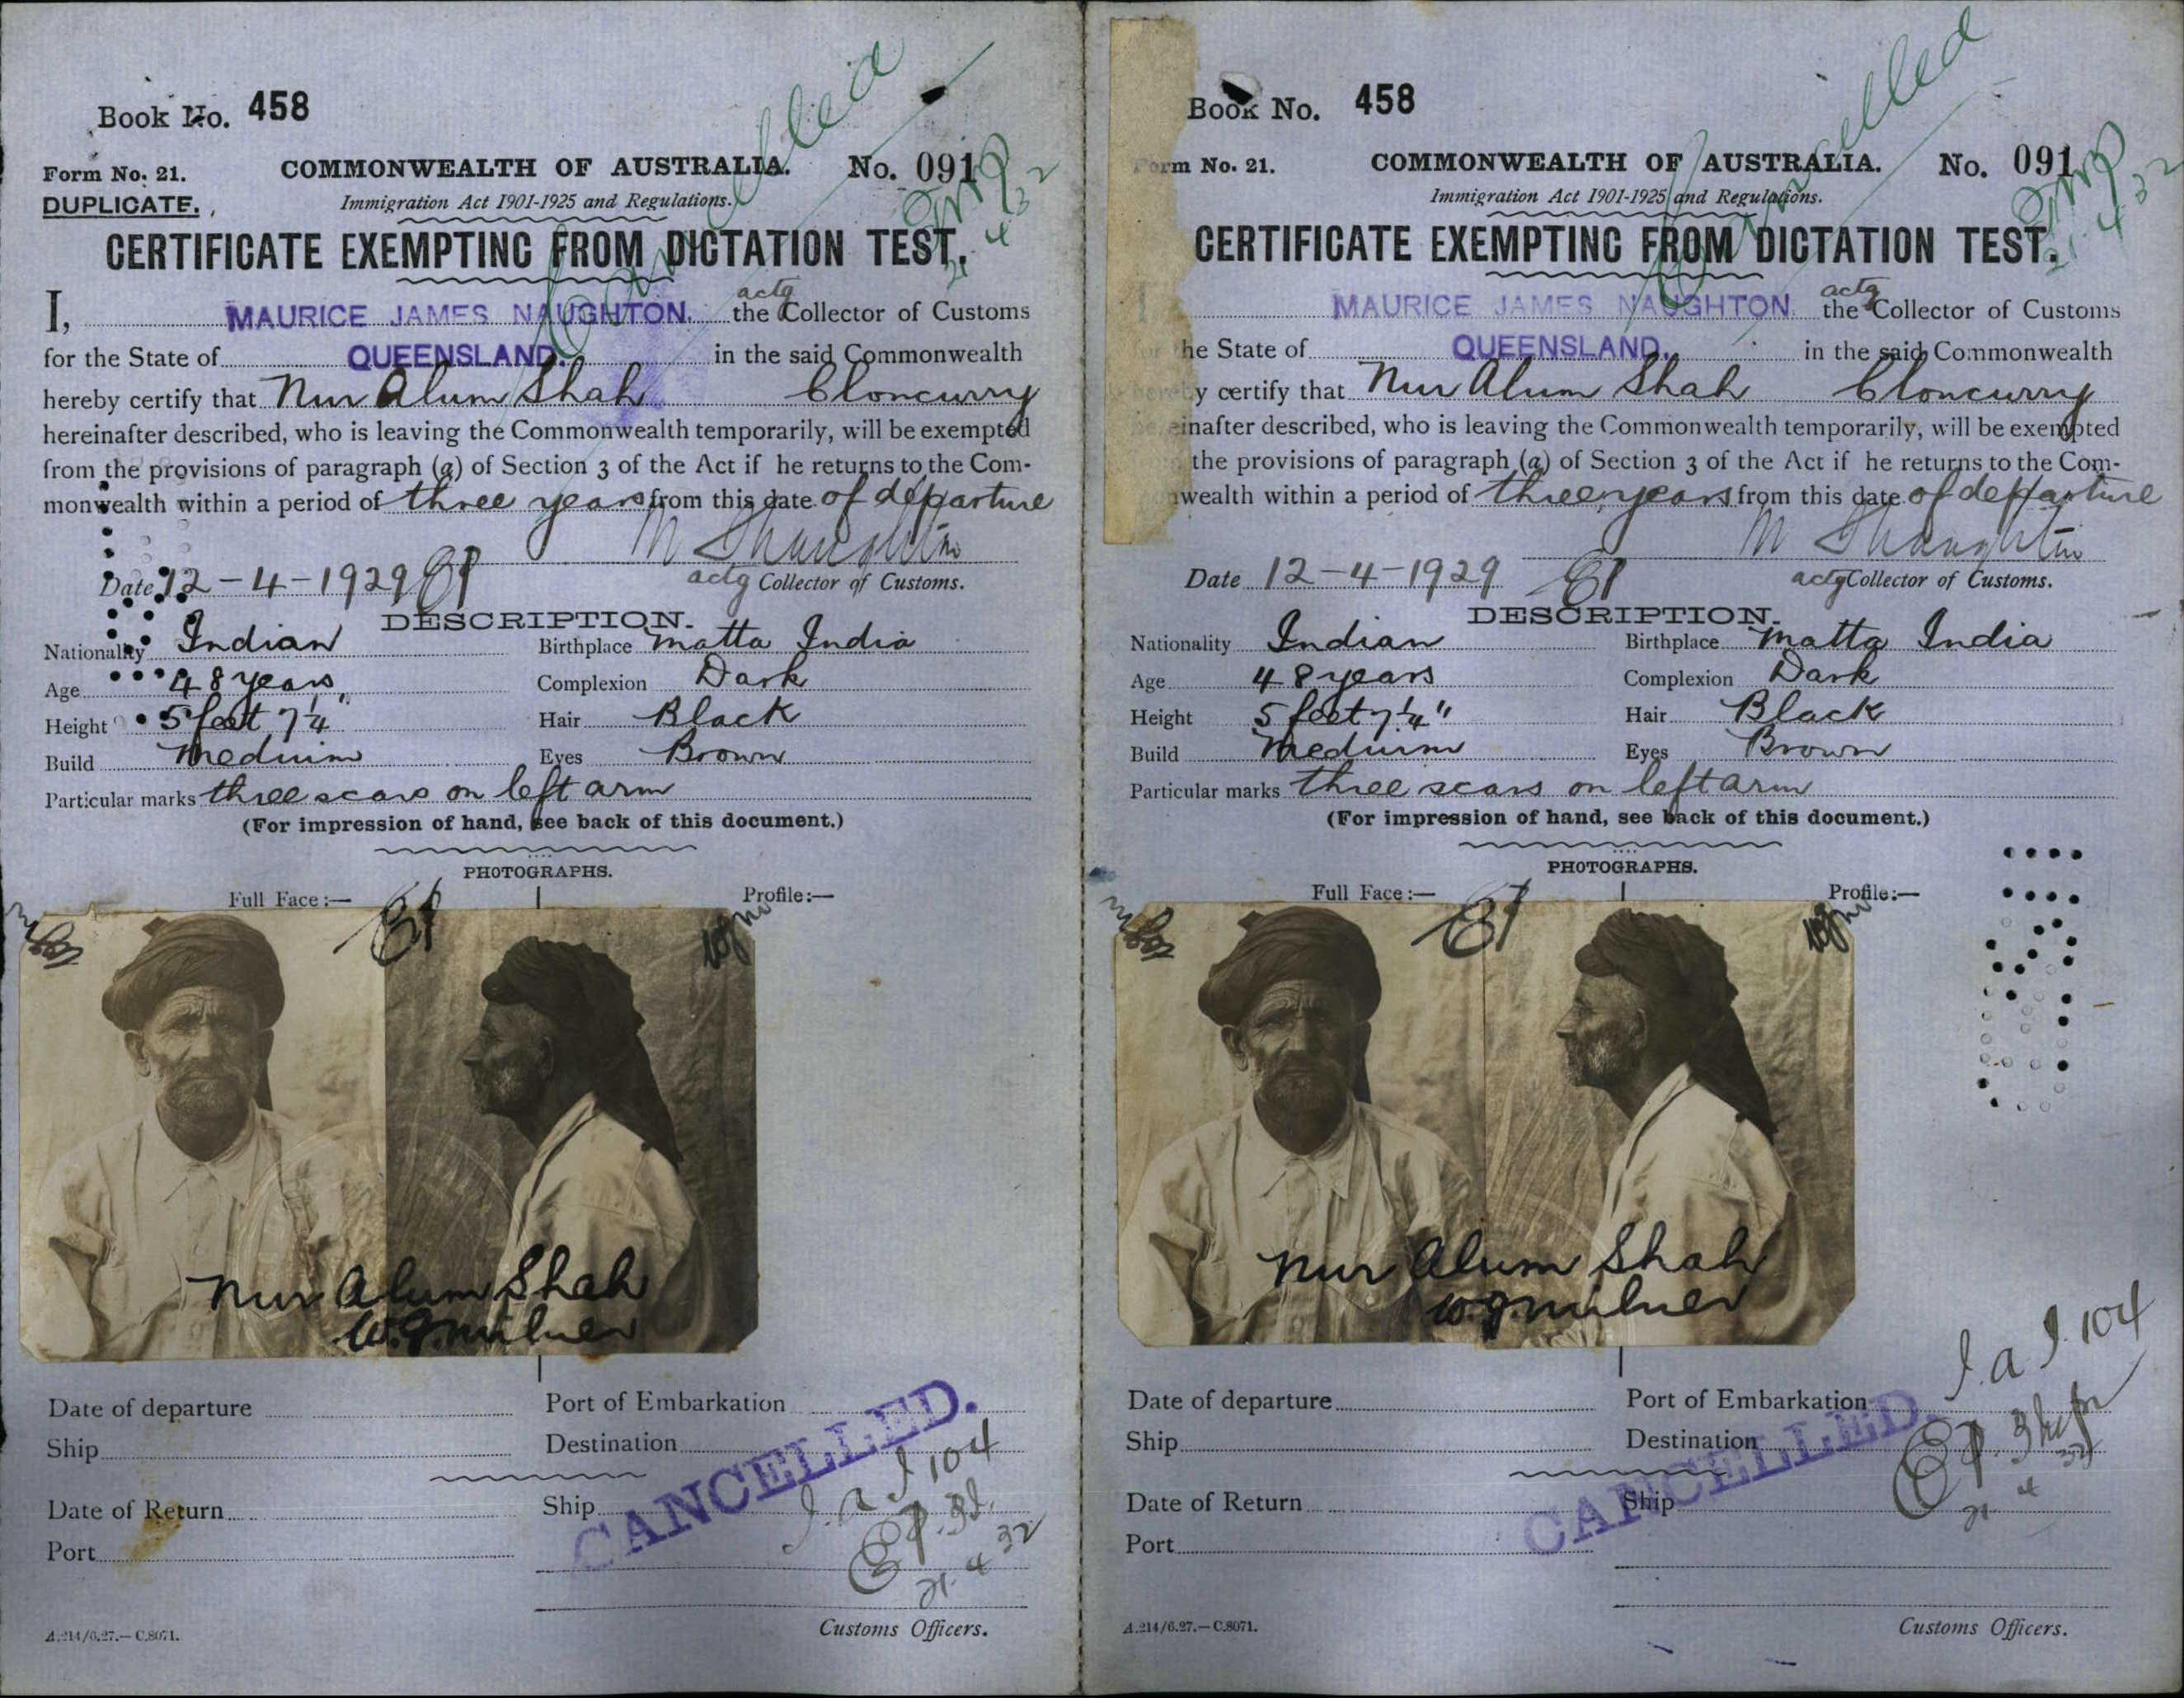 Book No. 458
Form No. 21.
COMMONWEALTH OF AUSTRALIA.
No. 091
DUPLICATE.
Immigration Act 1901-1925 and Regulations.
Cancelled
21 4 32
CERTIFICATE EXEMPTING FROM DICTATION TEST.
I, MAURICE JAMES NAUGHTON. the actg Collector of Customs
for the State of QUEENSLAND. in the said Commonwealth
hereby certify that Nur Alum Shah Cloncurry
hereinafter described, who is leaving the Commonwealth temporarily, will be exempted
from the provisions of paragraph (a) of Section 3 of the Act if he returns to the Com-
monwealth within a period of three years from this date of departure
Date 12-4-1929
actg Collector of Customs.
DESCRIPTION.
Nationality Indian Birthplace Matta India
Age 48 years Complexion Dark
Height 5 feet 7¼" Hair Black
Build Medium Eyes Brown
Particular marks three scars on left arm
(For impression of hand, see back of this document.)
PHOTOGRAPHS.
Full Face :— Profile :—
Nur Alum Shah
W.J. Milner
Date of departure Port of Embarkation
Ship Destination
CANCELLED.
104
Date of Return Ship
Port
21. 4 32
Customs Officers.
A.214/6.27.—C.8071.
Book No. 458
Form No. 21.
COMMONWEALTH OF AUSTRALIA.
No. 091
Immigration Act 1901-1925 and Regulations.
Cancelled
21.4.32
CERTIFICATE EXEMPTING FROM DICTATION TEST.
MAURICE JAMES NAUGHTON. the actg Collector of Customs
for the State of QUEENSLAND. in the said Commonwealth
hereby certify that Nur Alum Shah Cloncurry
einafter described, who is leaving the Commonwealth temporarily, will be exempted
the provisions of paragraph (a) of Section 3 of the Act if he returns to the Com-
nwealth within a period of three years from this date of departure
Date 12-4-1929
actg Collector of Customs.
DESCRIPTION.
Nationality Indian Birthplace Matta India
Age 48 years Complexion Dark
Height 5 feet 7¼" Hair Black
Build Medium Eyes Brown
Particular marks three scars on left arm
(For impression of hand, see back of this document.)
PHOTOGRAPHS.
Full Face :— Profile :—
Nur Alum Shah
W.J. Milner
I.a.I. 104
Date of departure Port of Embarkation
Ship Destination
CANCELLED.
Date of Return Ship
21 4 32
Port
Customs Officers.
A.214/6.27.—C.8071.